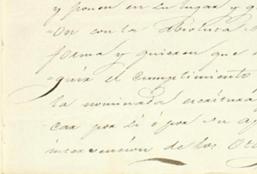 y ponen en su lugar y g
on con la absoluta
forma y quieren que
guir el cumplimiento
la nominada escritura
car por sí ó por su ap
intervención de los